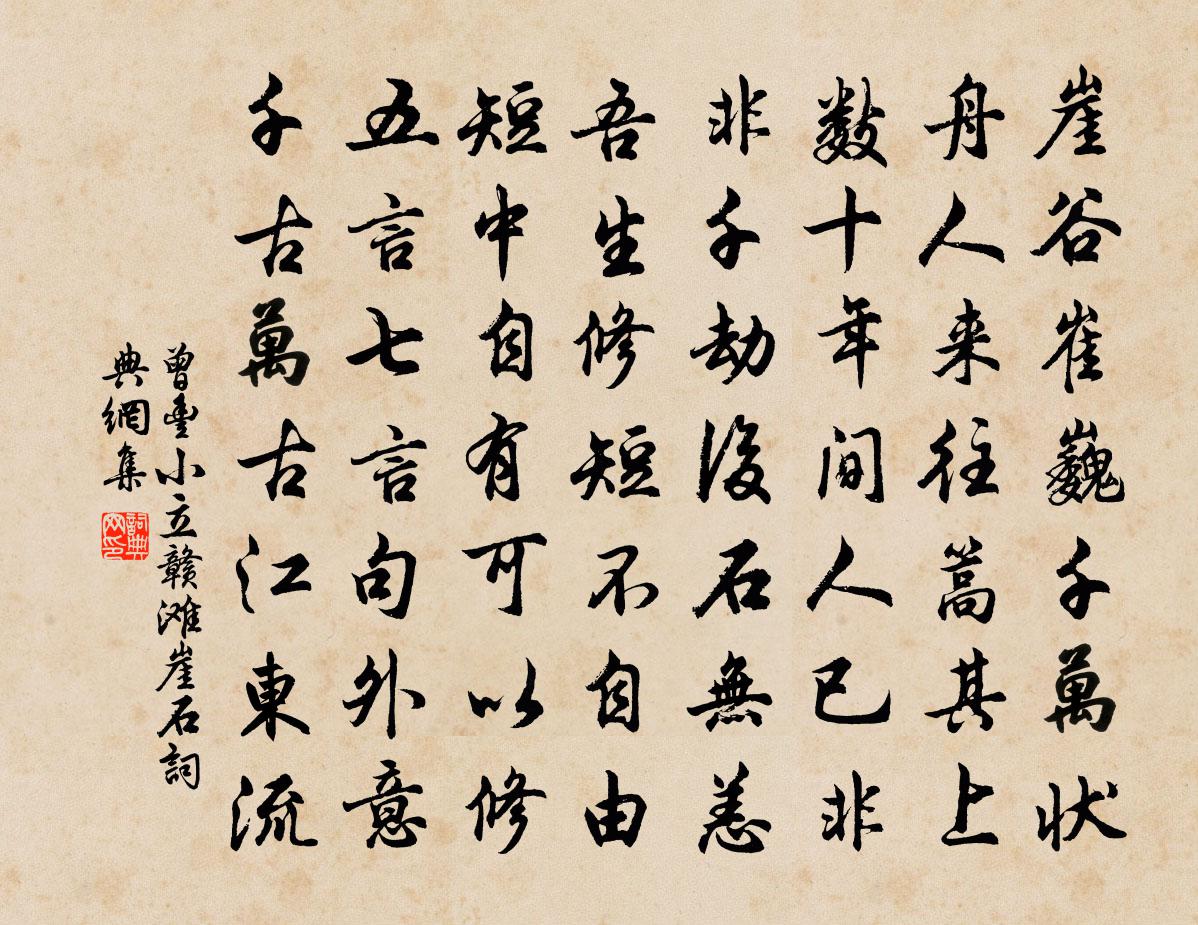 崖谷崔巍千萬狀
舟人来往蒿其上
数十年间人已非
非千劫後石無恙
吾生修短不自由
短中自有可以修
五言七言句外意
千古萬古江東流
曾豊小立贛滩崖石詞
典網集
詞典网印